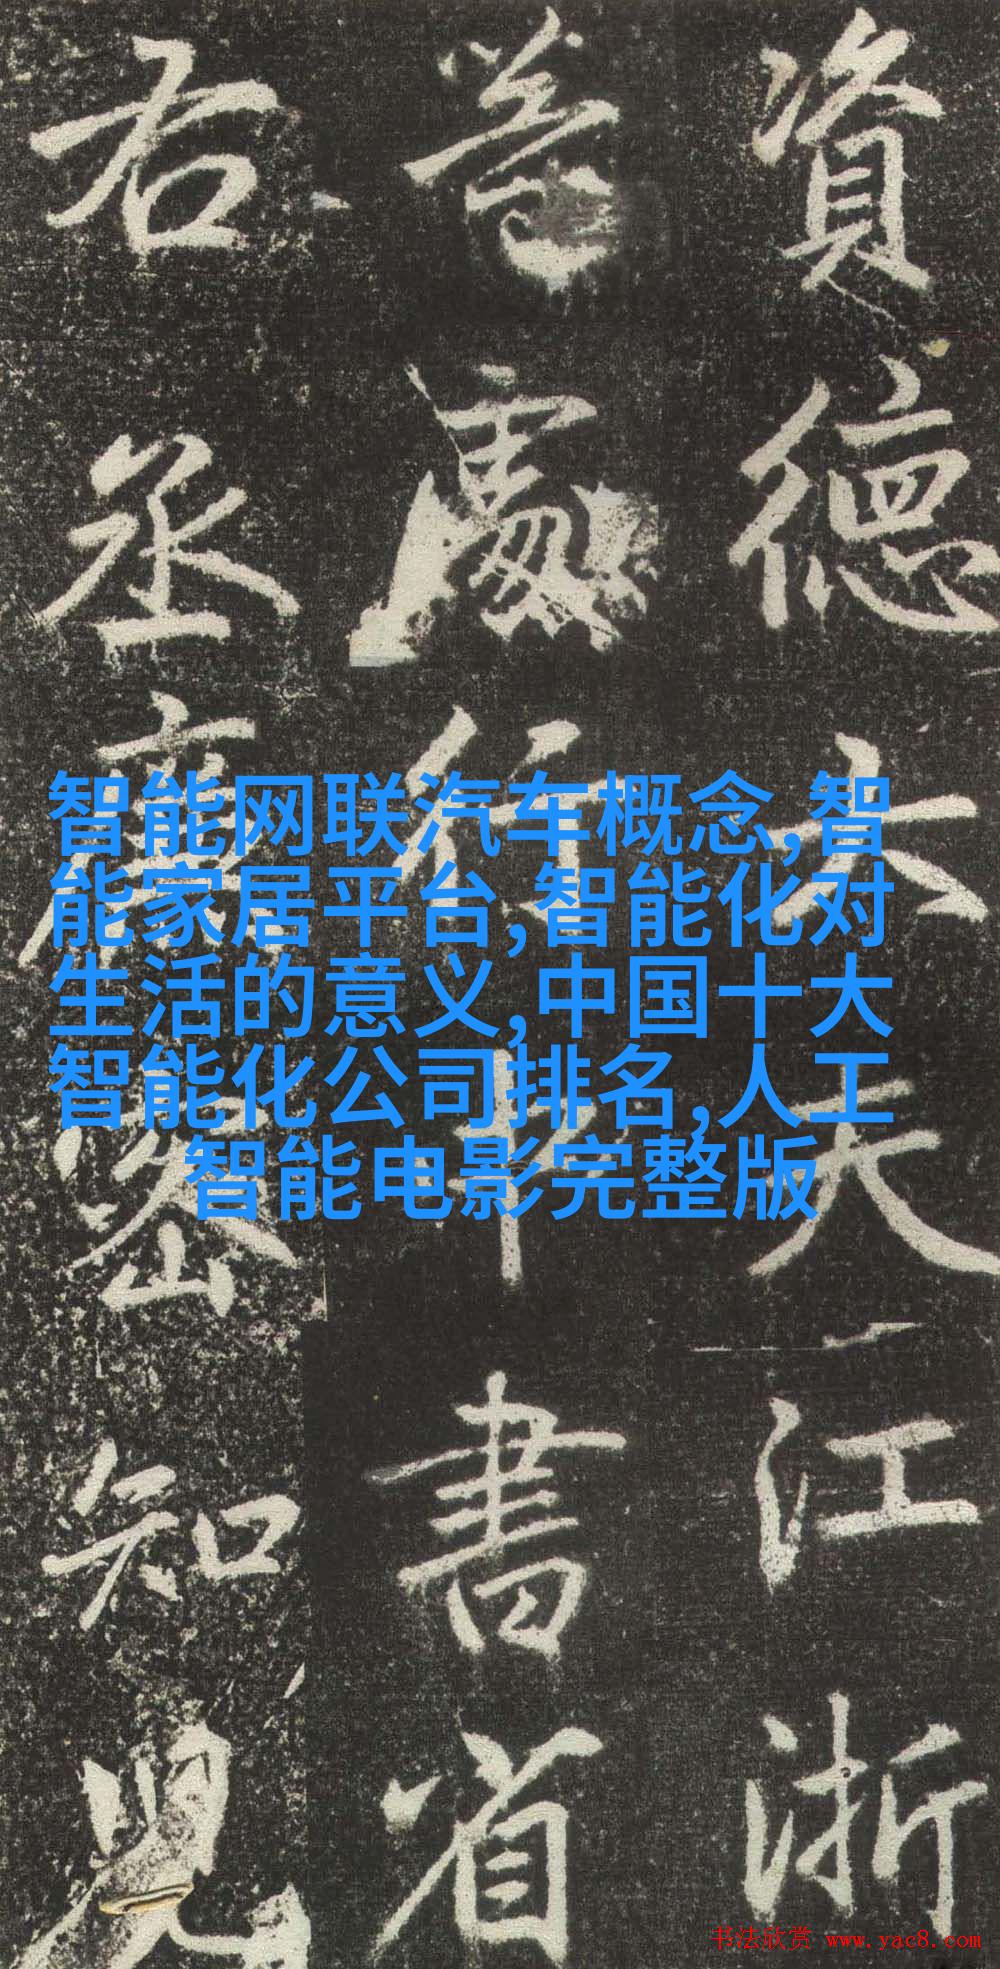 資德大夫江浙
等處行中書省
右丞廉密知兒
智能网联汽车概念,智
能家居平台,智能化对
生活的意义,中国十大
智能化公司排名,人工
智能电影完整版
书法欣赏 www.yac8.com